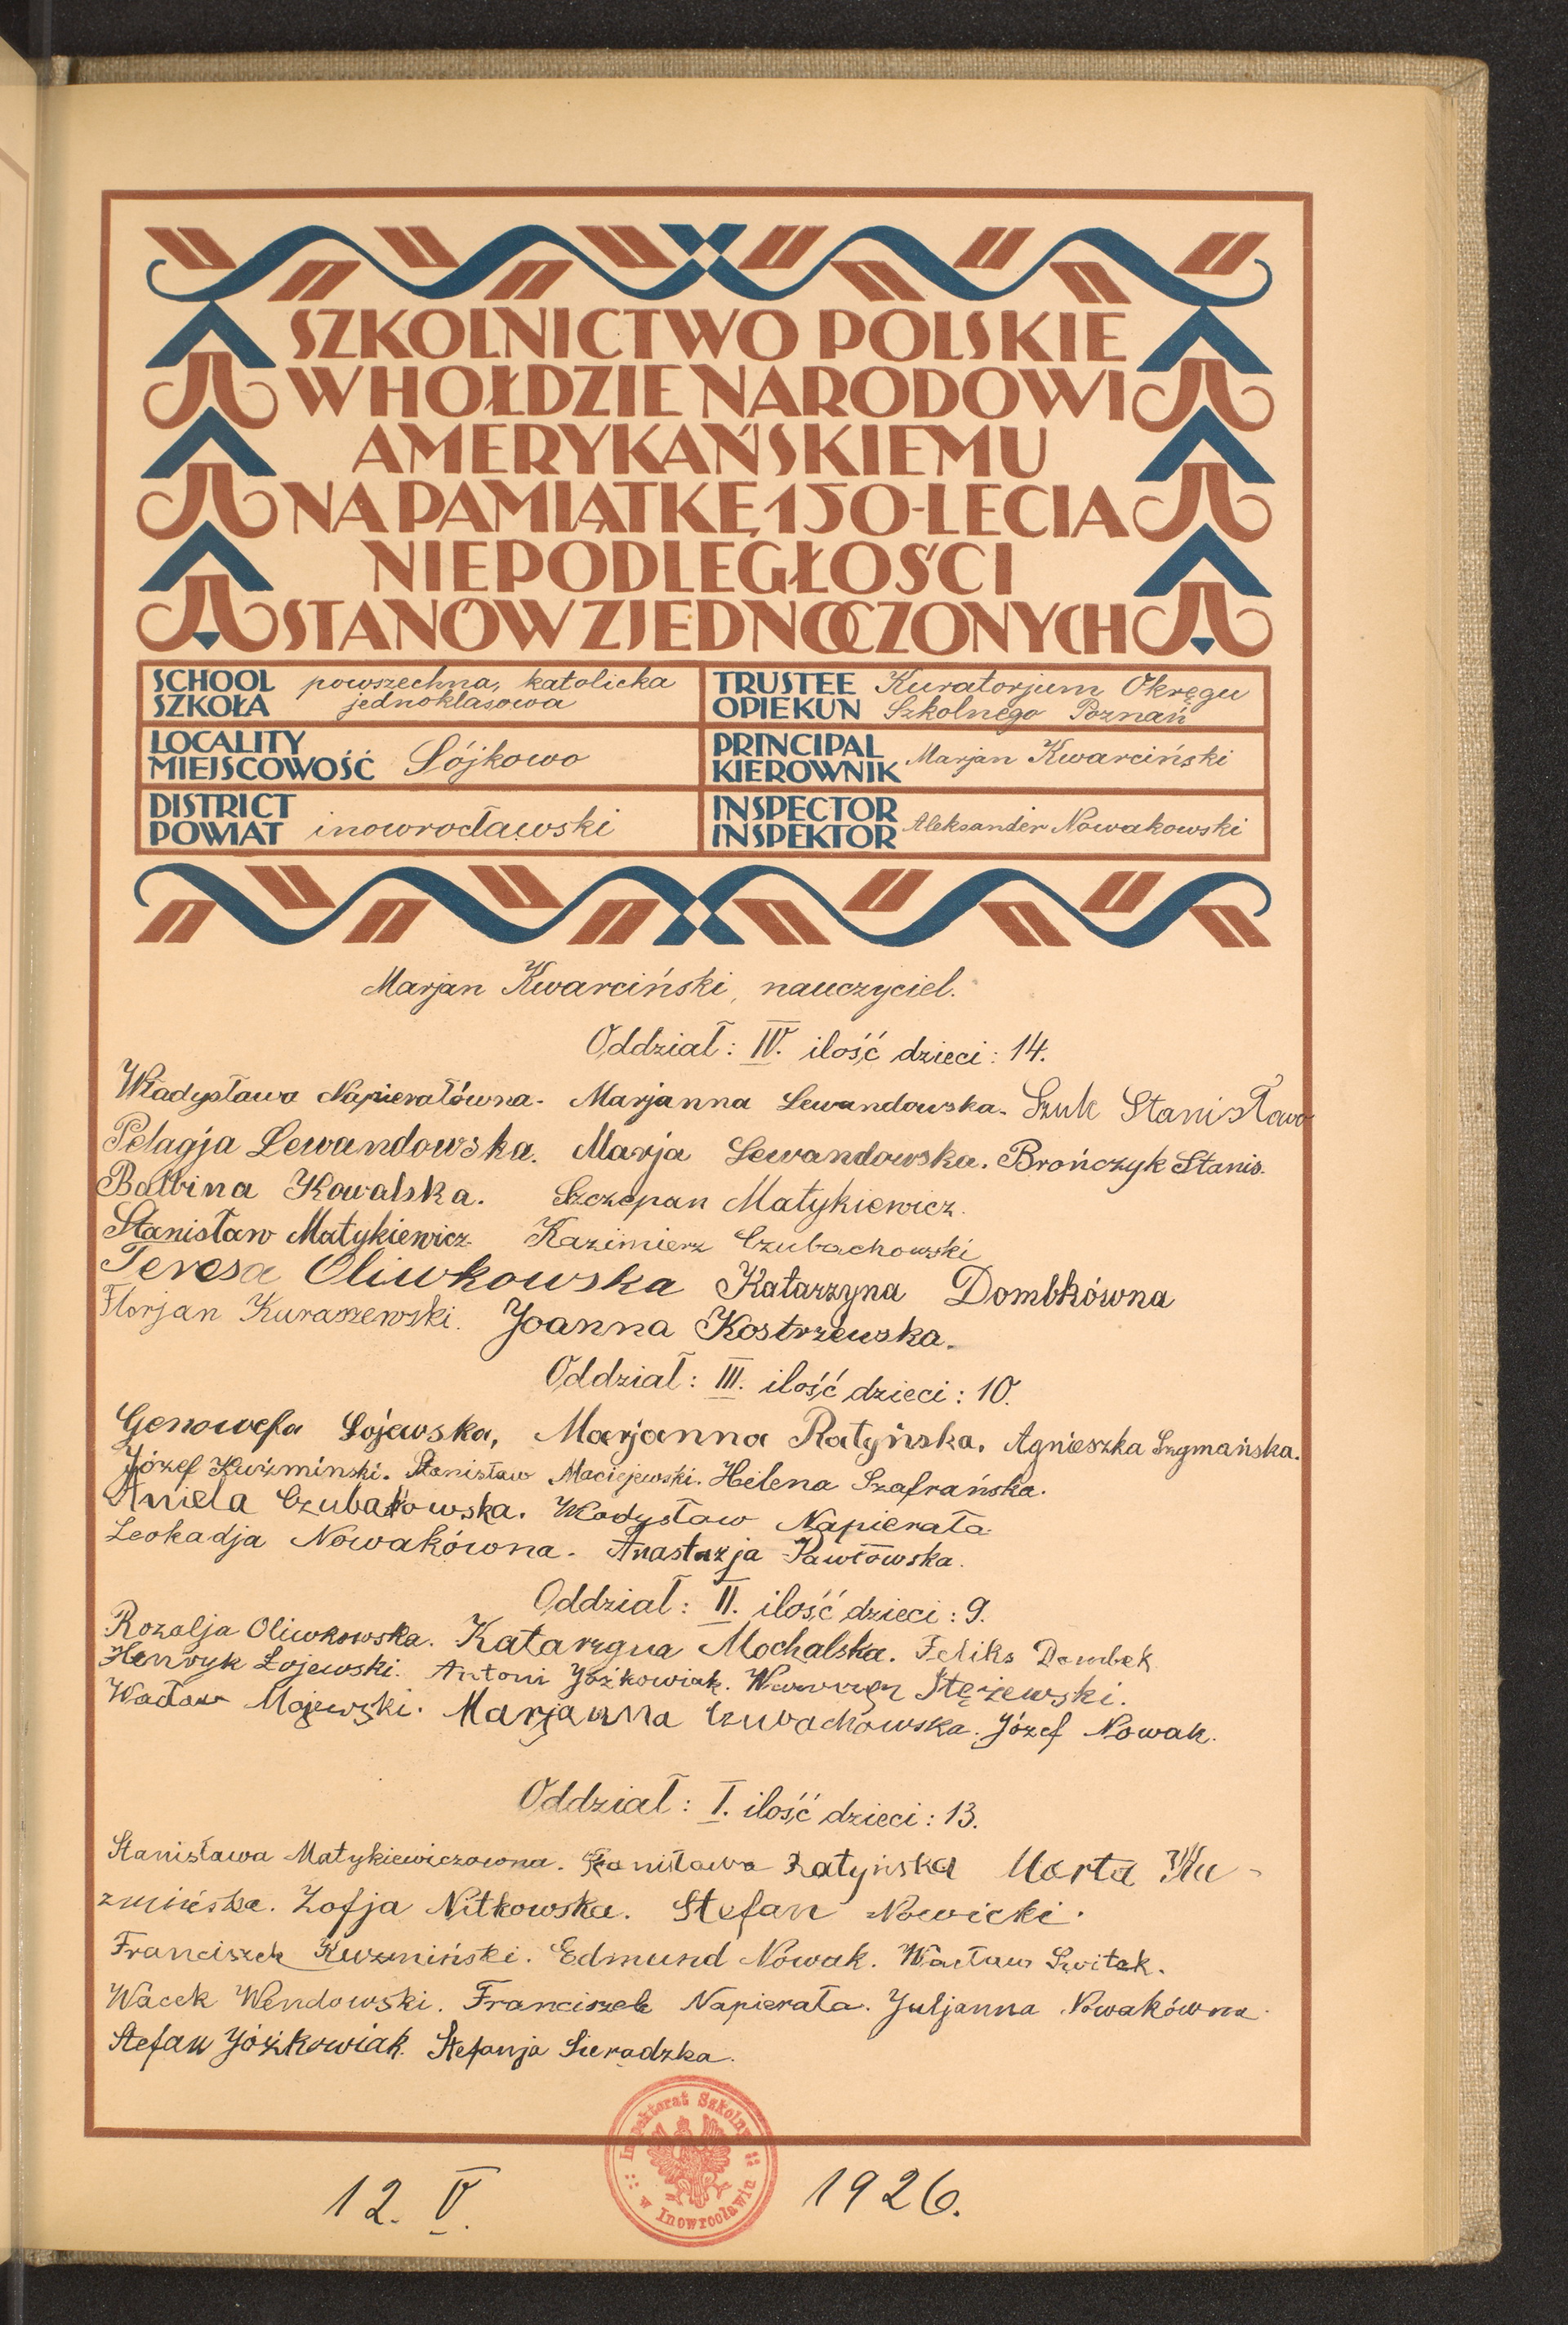 SZKOLNICTWO POLSKIE
W HOŁDZIE NARODOWI
AMERYKAŃSKIEMU
NA PAMIĄTKĘ 150-LECIA
NIEPODLEGŁOŚCI
STANÓW ZJEDNOCZONYCH
SCHOOL
SZKOŁA
powszechna, katolicka
jednoklasowa
TRUSTEE
OPIEKUN
Kuratorjum Okręgu
Szkolnego Poznań
LOCALITY
MIEJSCOWOŚĆ
Łójkowo
PRINCIPAL
KIEROWNIK
Marjan Kwarciński
DISTRICT
POWIAT
inowrocławski
INSPECTOR
INSPEKTOR
Aleksander Nowakowski
Marjan Kwarciński, nauczyciel.
Oddział: IV. ilość dzieci: 14.
Władysława Napierałówna. Marjanna Lewandowska. Szuk Stanisława
Pelagja Lewandowska. Marja Lewandowska. Brończyk Stanis.
Balbina Kowalska. Szczepan Matykiewicz.
Stanisław Matykiewicz Kazimierz Czubachowski
Teresa Oliwkowska Katarzyna Dombkówna
Florjan Kuraszewski. Joanna Kostrzewska.
Oddział: III. ilość dzieci: 10.
Genowefa Łojewska, Marjanna Ratyńska. Agnieszka Szymańska.
Józef Kuźmiński. Stanisław Maciejewski. Helena Szafrańska.
Aniela Władysław Napierała
Leokadja Nowakówna. Anastazja Pawłowska.
Oddział: II. ilość dzieci: 9.
Rozalja Oliwkowska. Katarzyna Mochalska. Feliks Dombek
Henryk Łojewski. Antoni Jóżkowiak. Wawrzyn Stężewski.
Wacław Majewski. Marjanna Czubachowska. Józef Nowak.
Oddział: I. ilość dzieci: 13.
Stanisława Matykiewiczowna. Stanisława Ratyńska Marta Ku-
zmińska. Zofja Nitkowska. Stefan Nowicki.
Franciszek Kuzmiński. Edmund Nowak. Wacław Switek.
Wacek Wendowski. Franciszek Napierała. Juljanna Nowakówna.
Stefan Jóżkowiak. Stefanja Sieradzka.
Inspektorat Szkolny
w Inowrocławiu
12. V. 1926.